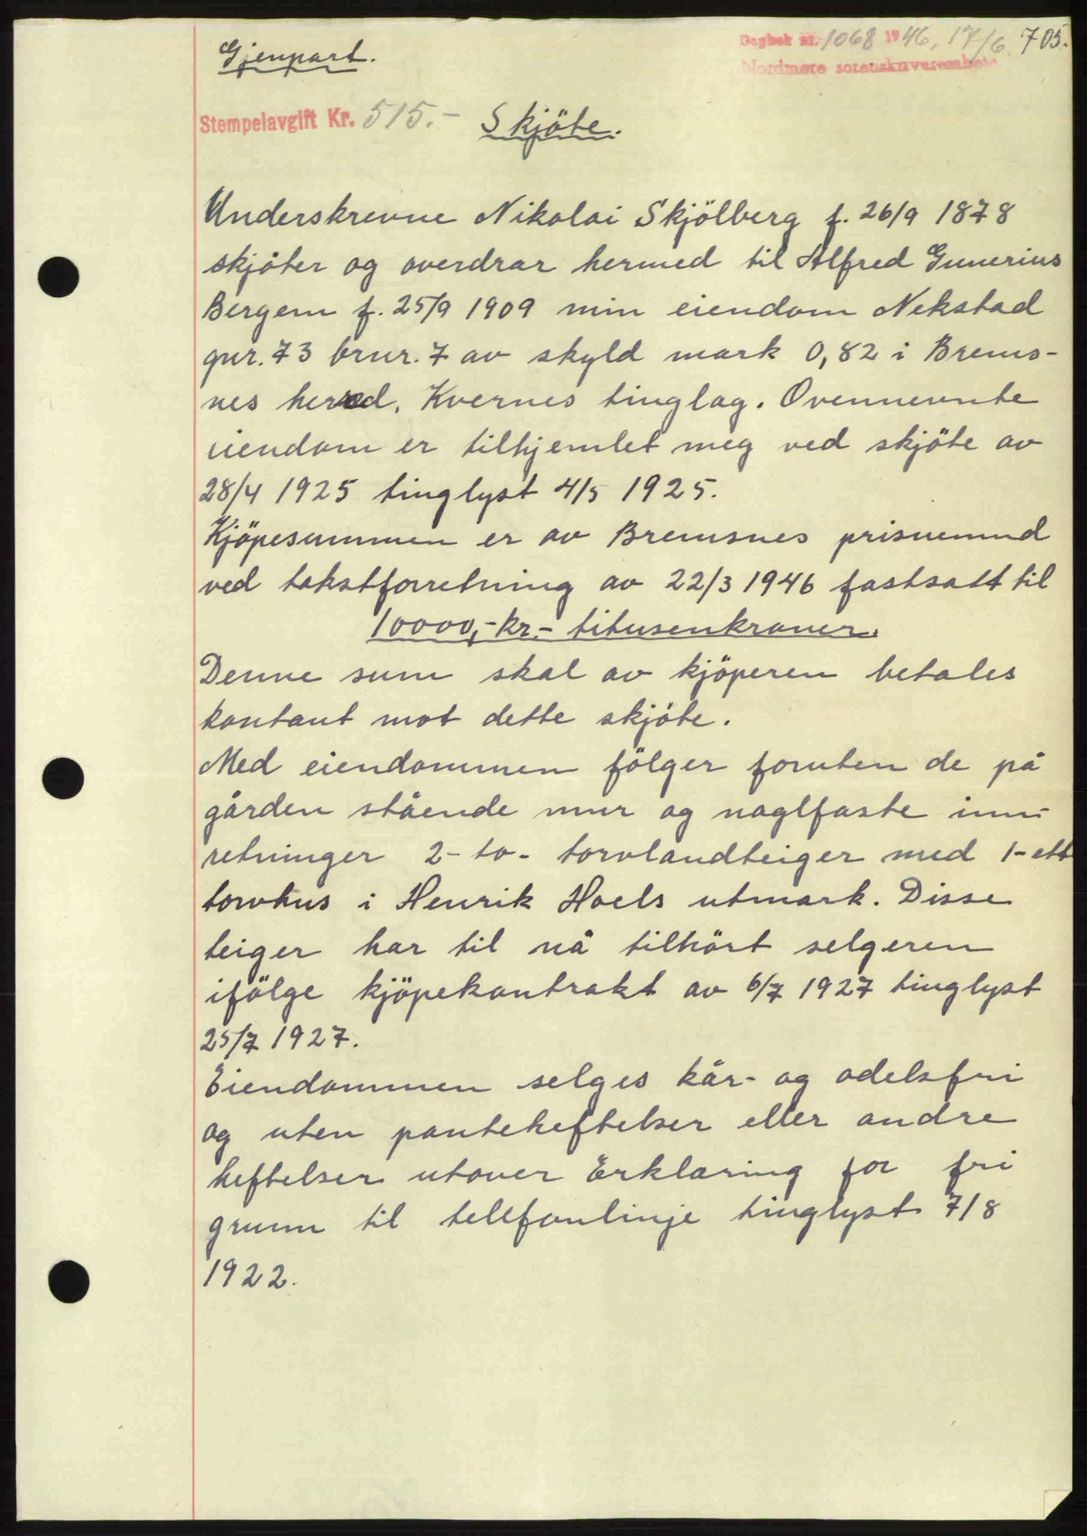 Gjenpart.
Dagbok nr. 1068 1946, 17/6 705.
Nordmøre sorenskriverembete
Stempelavgift Kr. 515.-
Skjöte.
Underskrevne Nikolai Skjölberg f. 26/9 1878
skjöter og overdrar hermed til Alfred Gunerius
Bergem f. 25/9 1909 min eiendom Nekstad
gnr. 73 brnr. 7 av skyld mark 0,82 i Brems-
nes herred, Kvernes tinglag. Ovennevnte
eiendom er tilhjemlet meg ved skjöte av
28/4 1925 tinglyst 4/5 1925.
Kjöpesummen er av Bremsnes prisnemnd
ved takstforretning av 22/3 1946 fastsatt til
10000,- kr.- titusenkroner.
Denne sum skal av kjöperen betales
kontant mot dette skjöte.
Med eiendommen fölger foruten de på
gården stående mur og naglfaste inn-
retninger 2- to- torvlandteiger med 1-ett
torvhus i Henrik Hoels utmark. Disse
teiger har til nå tilhört selgeren
ifölge kjöpekontrakt av 6/7 1927 tinglyst
25/7 1927.
Eiendommen selges kår- og odelsfri
og uten panteheftelser eller andre
heftelser utover Erklæring for fri
grunn til telefonlinje tinglyst 7/8
1922.